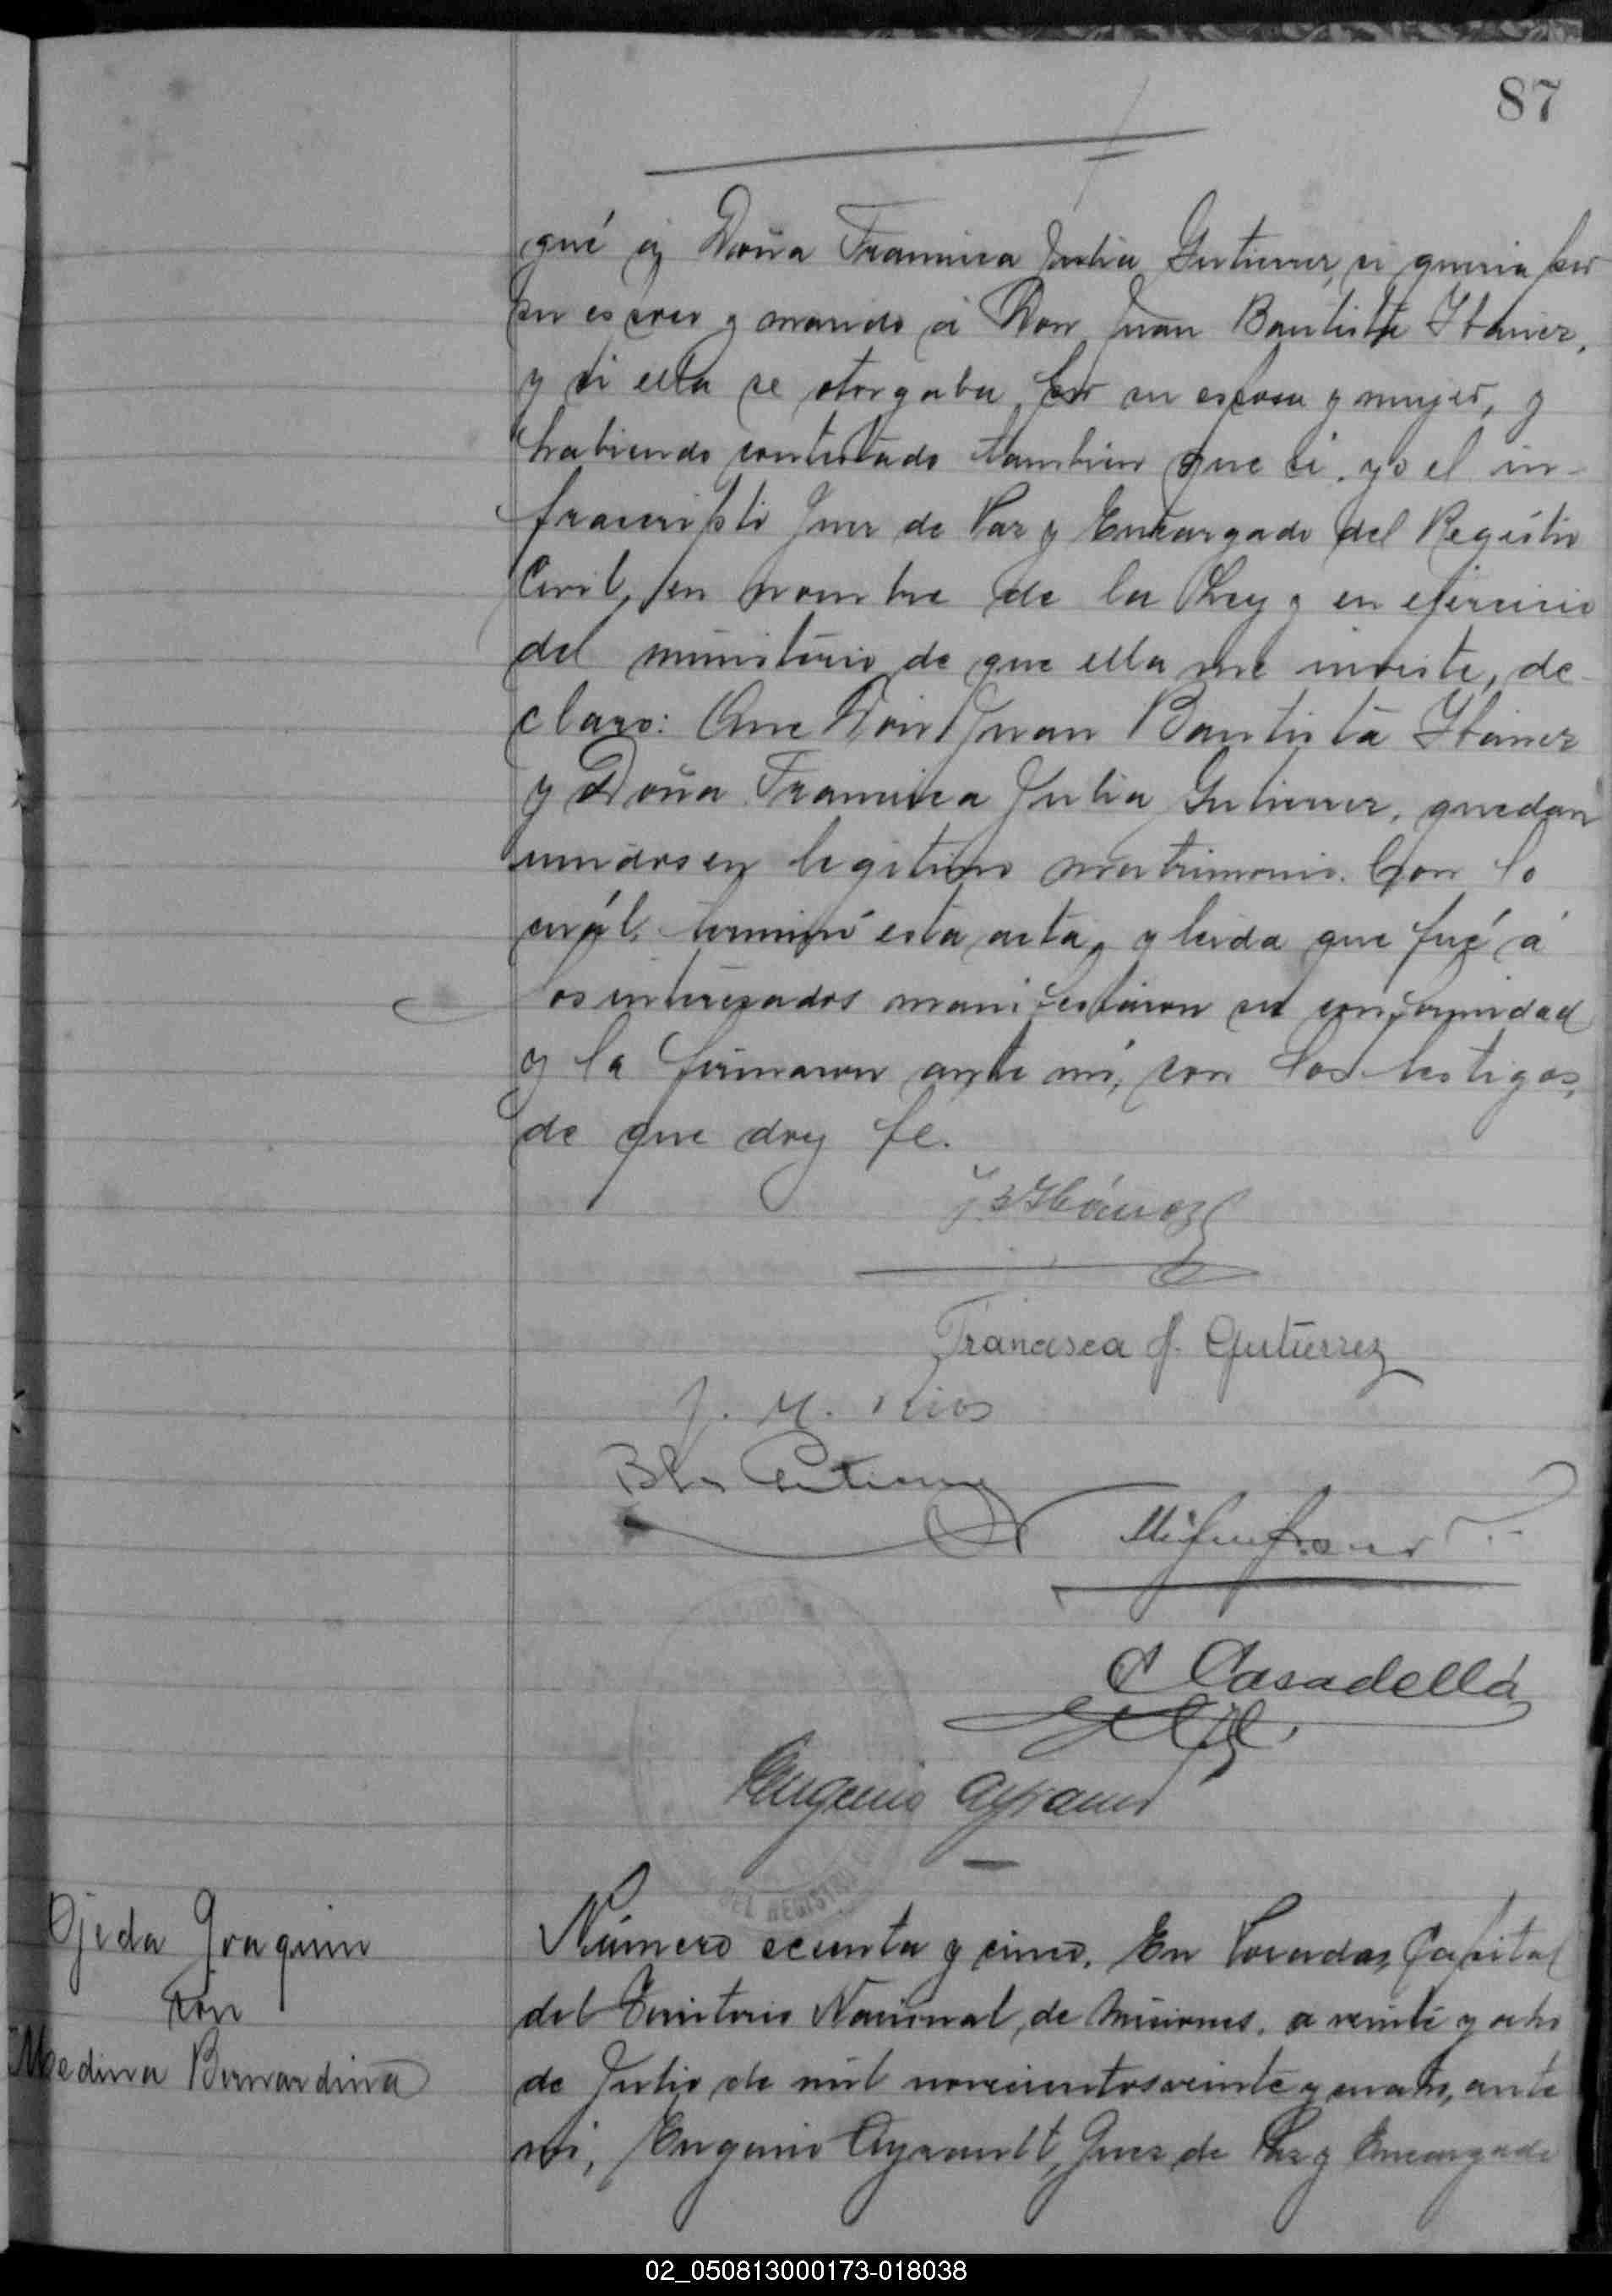 87
qué á Doña Francisca Julia Gutierrez, si queria por
su esposo y marido á Don Juan Bautista Ibañez,
y si ella se otorgaba por su esposa y mujer, y
habiendo contestado tambien que si, yo el in-
frascripto Juez de Paz y Encargado del Registro
Civil, en nombre de la Ley y en ejercicio
del ministerio de que ella me inviste, de-
claro: Que Don Juan Bautista Ibañez
y Doña Francisca Julia Gutierrez, quedan
unidos en legitimo matrimonio. Con lo
cuál, terminó esta acta, y leida que fué á
los interesados manifestaron su conformidad
y la firmaron ante mi, con los testigos,
de que doy fé.
J B Ibánez
Francisca J. Gutierrez
J. M. Rios
Blas Gutierrez
C Casadellá
Eugenio Ayrault
DEL REGISTRO
Ojeda Joaquin
con
Medina Bernardina
Número ecenta y cinco. En Posadas, Capital
del Territorio Nacional, de Misiones, a veinte y ocho
de Julio de mil novecientos veinte y cuatro, ante
mi, Eugenio Ayrault, Juez de Paz y Encargado
02_050813000173-018038